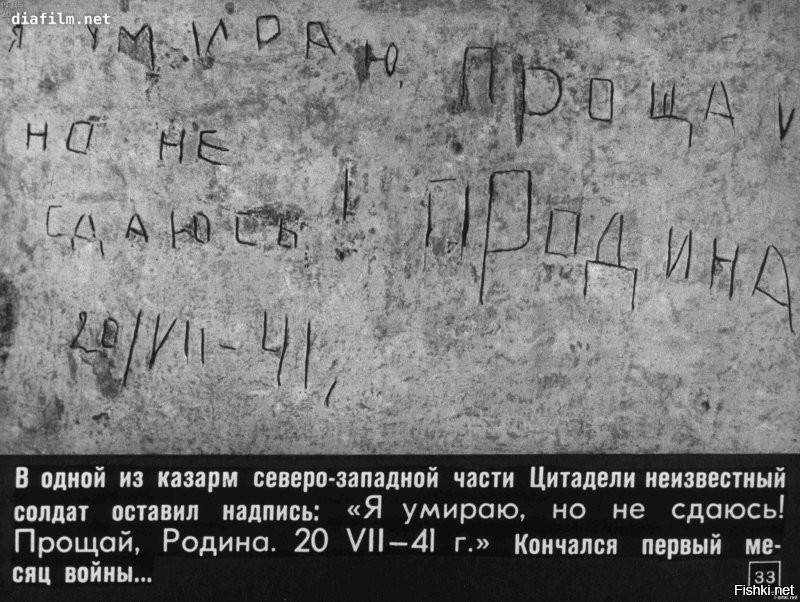 diafilm.net
Я УМИРАЮ,
НО НЕ
СДАЮСЬ!
20/VII-41,
ПРОЩАЙ
П РОДИНА
В одной из казарм северо-западной части Цитадели неизвестный
солдат оставил надпись: «Я умираю, но не сдаюсь!
Прощай, Родина. 20 VII—41 г.» Кончался первый ме-
сяц войны...
33
Fishki.net